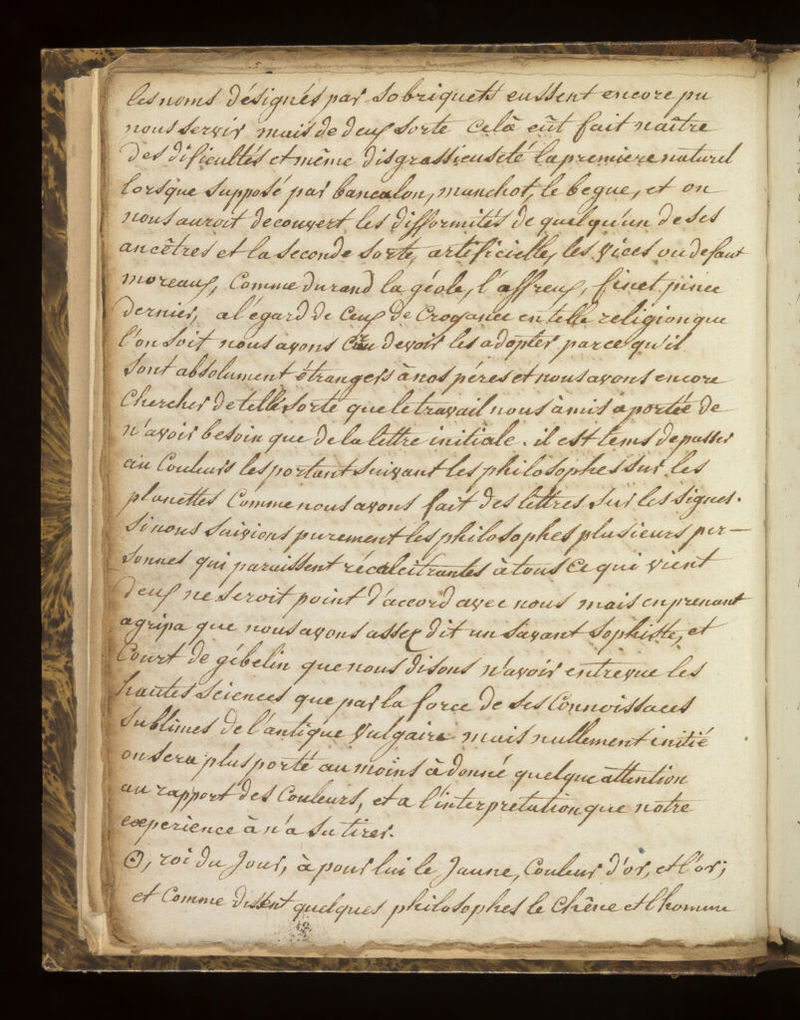 les noms désignés par sobriquets eussent encore pu
nous servir mais de deux sorte celà eût fait naître
des dificultés et même disgrassieuseté la premiere naturel
lorsque supposé par bancalon, manchot, le begue, et on
nous auroit decouvert les difformités de quelqu'un de ses
ancêtres et la seconde sorte, artificielle, les vices ou defaut
moreaux, Comme durand la géole, l'affreux, finet pince
dernier, al'egard de Ceux de Croyance en telle religion que
l'on soit nous avons Cru devoir les adopter parcequ'il
sont absolument étrangers à nos péres et nous avons encore
Chercher de telle sorte que le travail nous à mis a portée de
n'avoir besoin que de la lettre initiale. il est tems de passer
aux Couleurs les portant suivant les philosophes sur les
planettes Comme nous avons fait des lettres sur les signes.
Si nous suivions purement les philosophes plusieurs per-
sonnes qui paraissent récalcitrantes à tous Ce qui vient
deux ne seroit point d'accord avec nous mais en prenant
agripa que nous avons assez dit un savant sophiste, et
Court de gébelin que nous disons n'avoir entrevue les
hautes sciences que par la force de ses Connoissaces
sublimes de l'antique Vulgaire mais nullement initié
on sera plus porté au moins à donné quelque attention
au rapport des Couleurs, et a l'interpretation que notre
experience à n'a su tirer.
☉, roi du Jour, à pour lui le Jaune, Couleur d'or, et l'or;
et Comme disent quelques philosophes le Chêne et l'homme